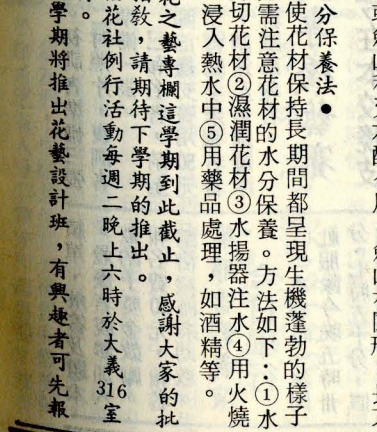 分保養法●
使花材保持長期間都呈現生機蓬勃的樣子
需注意花材的水分保養。方法如下：①水
切花材②濕潤花材③水揚器注水④用火燒
浸入熱水中⑤用藥品處理，如酒精等。
花之藝專欄這學期到此截止，感謝大家的批
指教，請期待下學期的推出。
花社例行活動每週二晚上六時於大義316室
學期將推出花藝設計班，有興趣者可先報